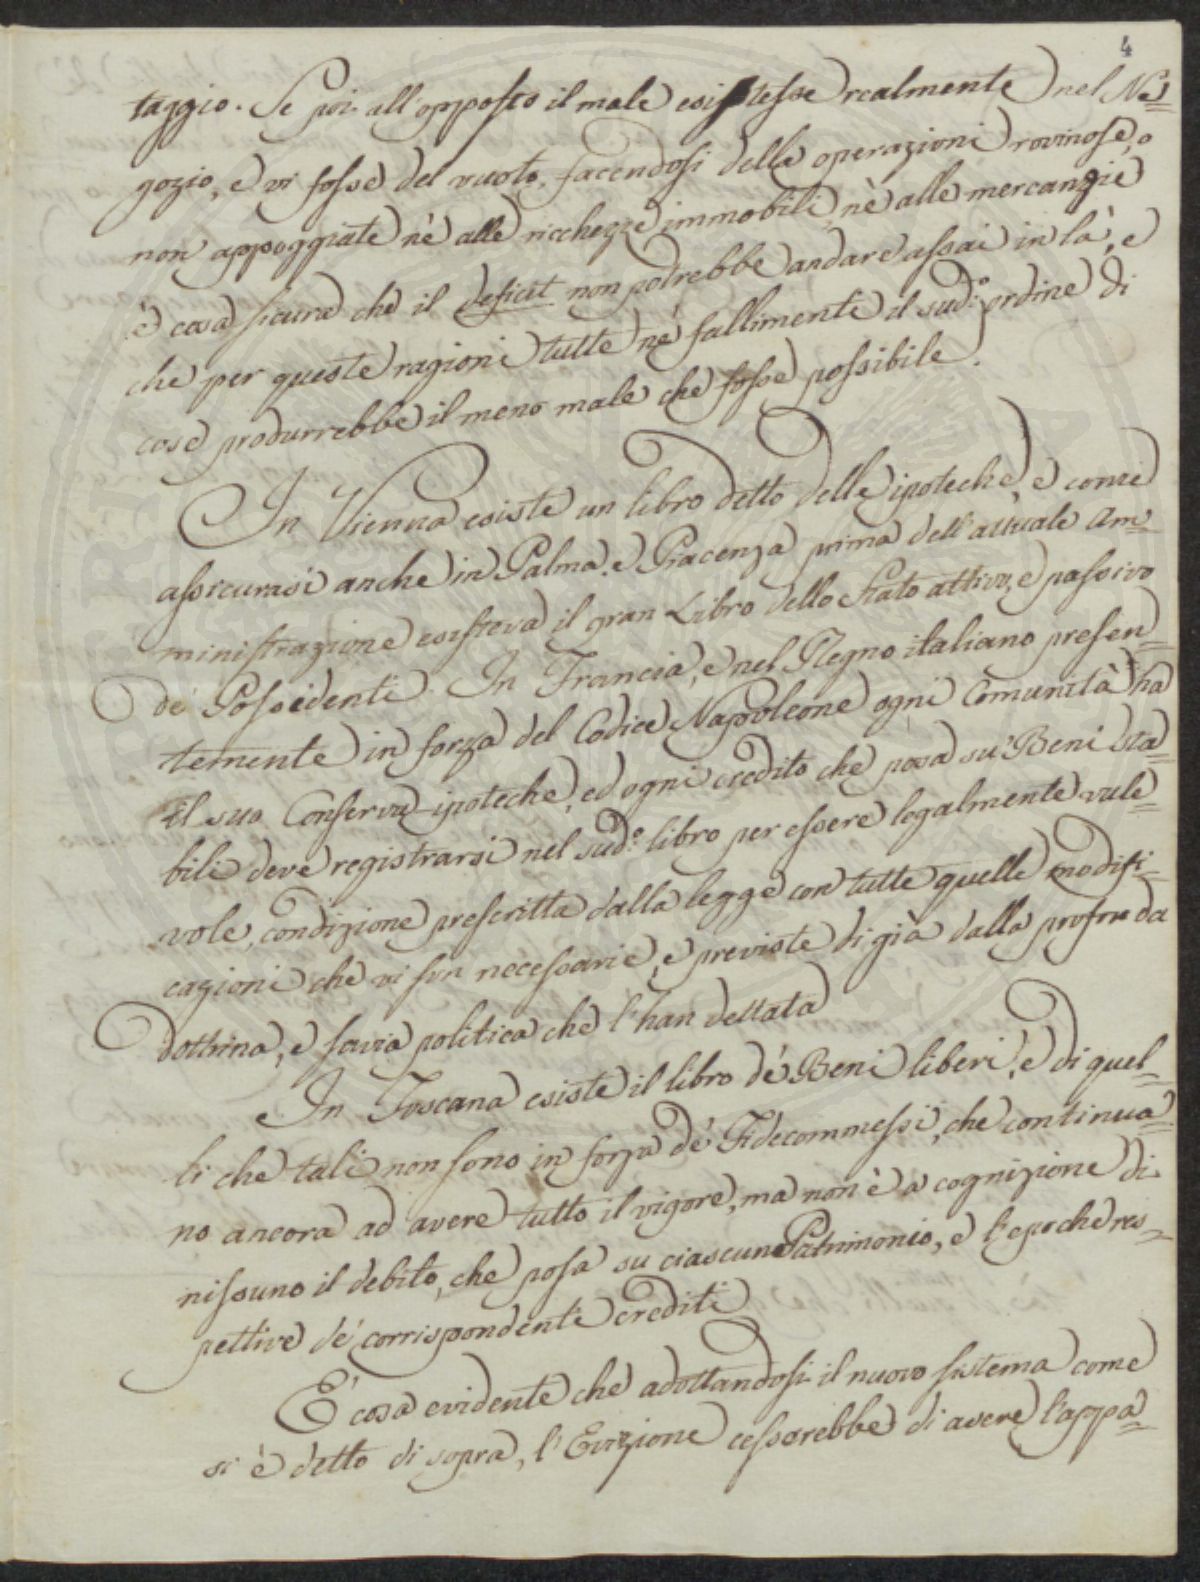 4
taggio. Se poi all'opposto il male esistesse realmente nel Ne=
gozio, e vi fosse del vuoto, facendosi delle operazioni rovinose, o
non appoggiate nè alle ricchezze immobili nè alle mercanzie
è cosa sicura che il deficit non potrebbe andare assai in là, e
che per queste ragioni tutte ne' fallimenti il sud.º ordine di
cose produrrebbe il meno male che fosse possibile.
In Vienna esiste un libro detto delle ipoteche, e come
assicurasi anche in Palma, e Piacenza prima dell'attuale Am=
ministrazione esisteva il gran Libro dello Stato attivo, e passivo
de' Possidenti. In Francia, e nel Regno italiano presen=
temente in forza del Codice Napoleone ogni Comunità ha
il suo Conserva ipoteche, ed ogni credito che posa su' Beni sta=
bili deve registrarsi nel sud.º libro per essere legalmente vale=
vole, condizione prescritta dalla legge con tutte quelle modifi=
cazioni che vi son necessarie, e previste di già dalla profonda
dottrina, e savia politica che l'han dettata
In Toscana esiste il libro de' Beni liberi, e di quel=
li che tali non sono in forza de' Fidecommessi, che continua=
no ancora ad avere tutto il vigore, ma non è a cognizione di
nissuno il debito, che posa su ciascuno Patrimonio, e l'epoche res=
pettive de' corrispondenti crediti
È cosa evidente che adottandosi il nuovo sistema come
si è detto di sopra, l'Evizione cesserebbe di avere l'appa=